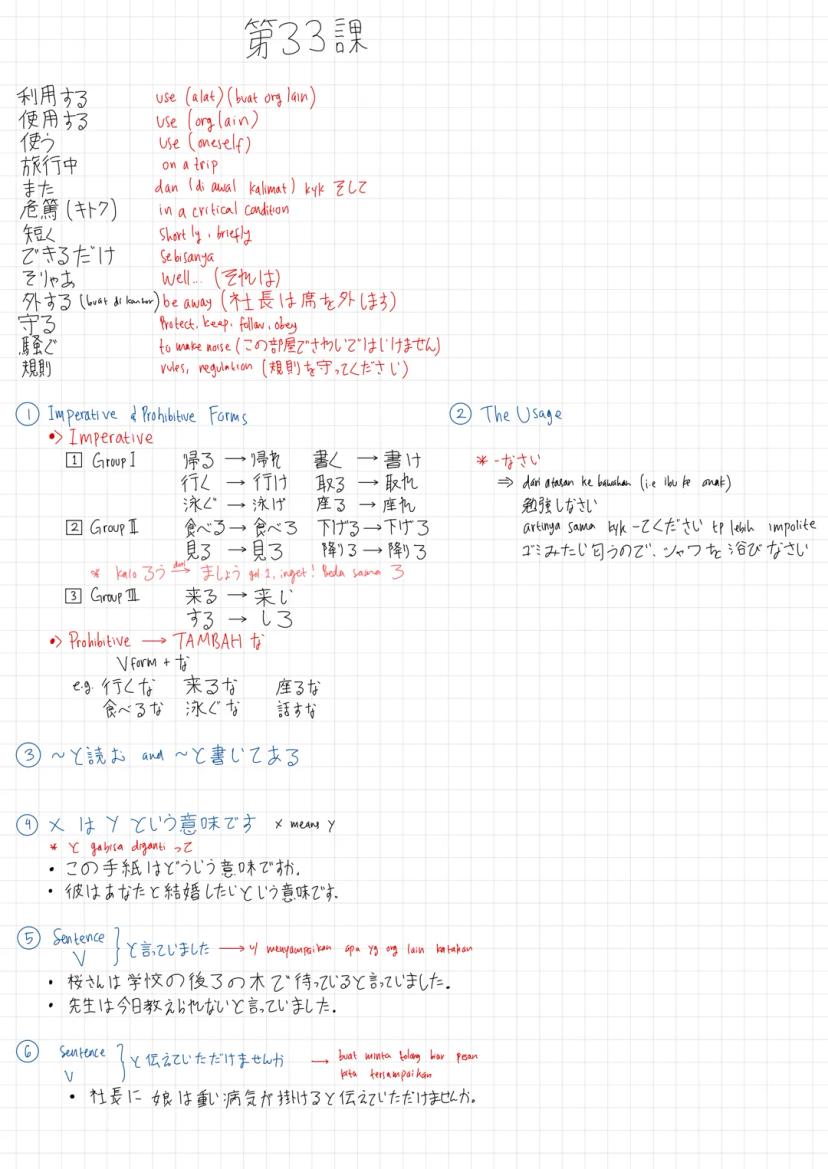 第33課
利用する use (alat) (buat org lain)
使用する use (org lain)
使う use (oneself)
旅行中 on a trip
また dan (di awal kalimat) kyk そして
危篤 (キトク) in a critical condition
短く Shortly, briefly
できるだけ Sebisanya
そりゃあ Well... (それは)
外する (buat di kantor) be away (社長は席を外します)
守る Protect, keep, follow, obey
騒ぐ to make noise (この部屋でさわいではいけません)
規則 rules, regulation (規則を守ってください)
① Imperative & Prohibitive Forms
•> Imperative
1 Group I 帰る → 帰れ 書く → 書け
行く → 行け 取る → 取れ
泳ぐ → 泳げ 座る → 座れ
2 Group II 食べる → 食べろ 下げる → 下げろ
見る → 見ろ 降りる → 降りろ
* kalo ろう dari → ましょう gol 2, inget! Beda sama ろ
3 Group III 来る → 来い
する → しろ
•> Prohibitive → TAMBAH な
V form + な
e.g. 行くな 来るな 座るな
食べるな 泳ぐな 話すな
② The Usage
* -なさい
⇒ dari atasan ke bawahan (i.e Ibu ke anak)
勉強しなさい
artinya sama kyk -てください tp lebih impolite
ゴミみたい匂うので、シャワを浴びなさい
③ ~と読む and ~と書いてある
④ X は Y という意味です X means Y
* と gabisa diganti って
• この手紙はどういう意味ですか.
• 彼はあなたと結婚したいという意味です.
⑤ Sentence
V } と言っていました → u/ menyampaikan apa yg org lain katakan
• 桜さんは学校の後ろの木で待っていると言っていました.
• 先生は今日教えられないと言っていました.
⑥ Sentence
V } と伝えていただけませんか → buat minta tolong biar pesan
kita tersampaikan
• 社長に 娘は重い病気が掛けると伝えていただけませんか.